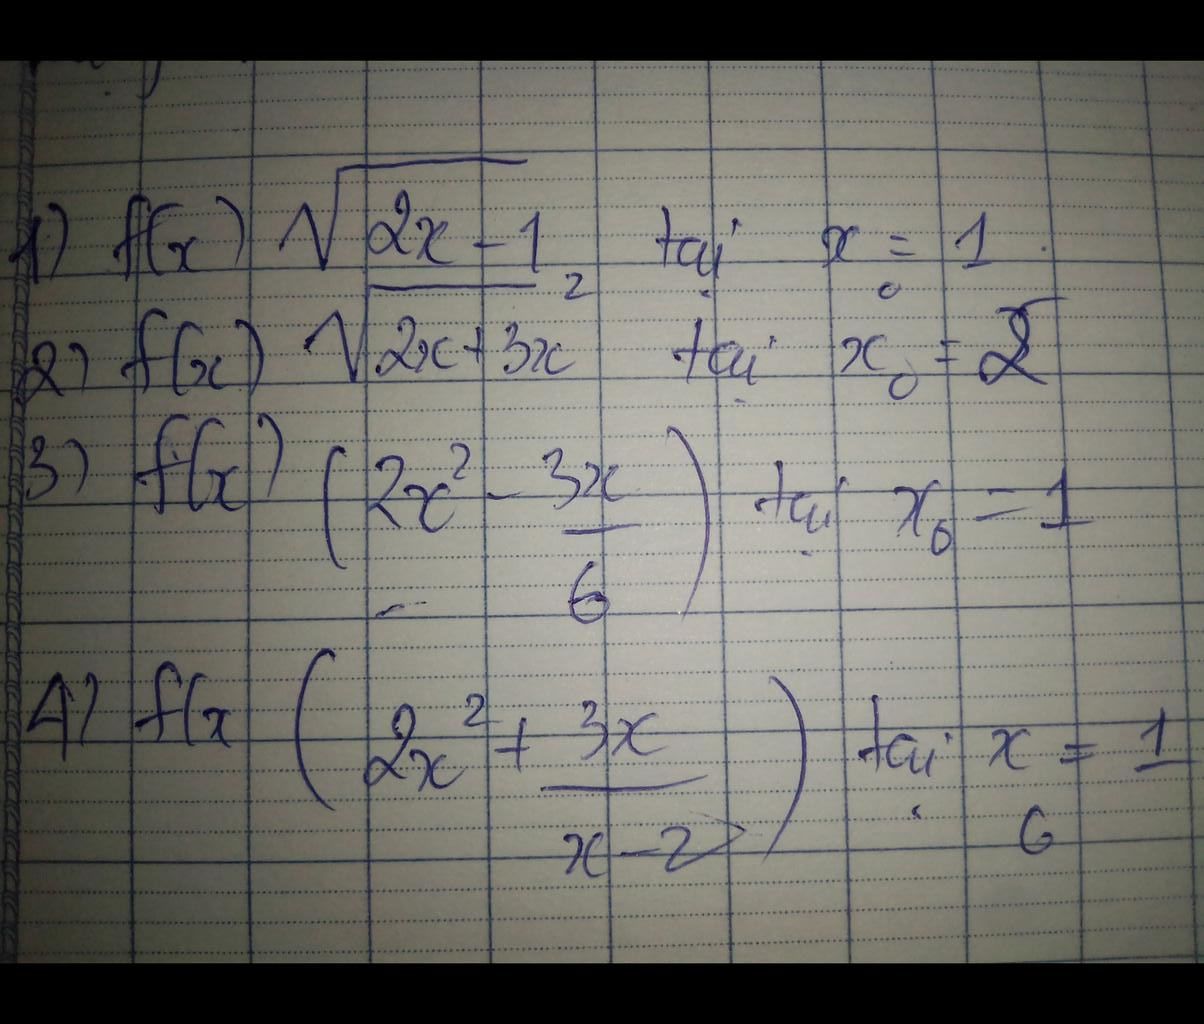 1) f(x) √2x - 1 tại x₀ = 1.
2) f(x) √2x² + 3x tại x₀ = 2
3) f(x) (2x² - 3x/6) tại x₀ = 1
4) f(x (2x² + 3x/x - 2) tại x₀ = 1